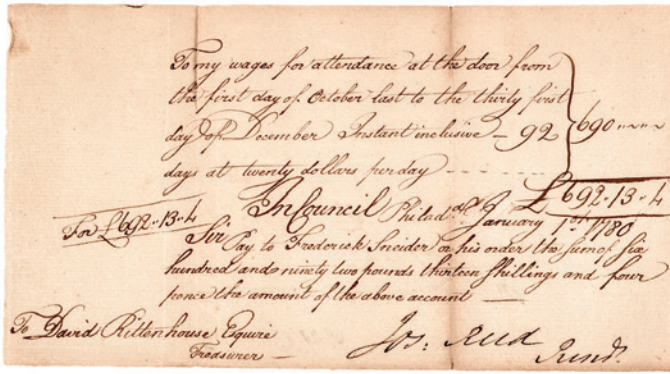 To my wages for attendance at the door from
the first day of October last to the thirty first
day of December Instant inclusive — 92 690 " " "
days at twenty dollars per day
£ 692 - 13 - 4
In Council Philad.a January 1st 1780
For £692 - 13 - 4
Sir
Pay to Frederick Sneider or his order the sum of six
hundred and ninety two pounds thirteen Shillings and four
pence the amount of the above account —
To David Rittenhouse Esquire
Treasurer —
Jos: Reed